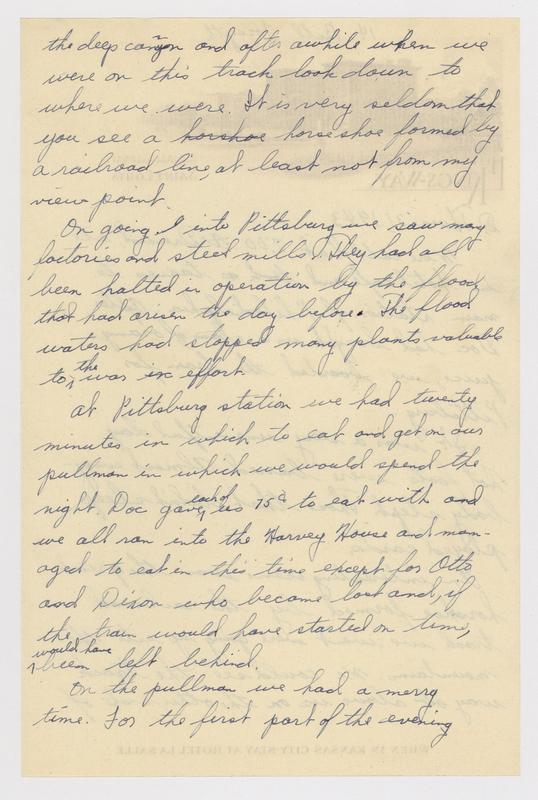 the deep cañyon and after awhile when we
were on this track look down to
where we were. It is very seldom that
you see a horshoe horseshoe formed by
a railroad line, at least not from my
view point.
On going I into Pittsburg we saw many
factories and steel mills. They had all
been halted in operation by the flood
that had arisen the day before. The flood
waters had stopped many plants valuable
to the war in effort.
At Pittsburg station we had twenty
minutes in which to eat and get on our
pullman in which we would spend the
night. Doc gave each of us 75¢ to eat with and
we all ran into the Harvey House and man-
aged to eat in this time except for Otto
and Dixon who became lost and, if
the train would have started on time,
would have
been left behind.
On the pullman we had a merry
time. For the first part of the evening
WHEN IN KANSAS CITY STAY AT HOTEL LA SALLE